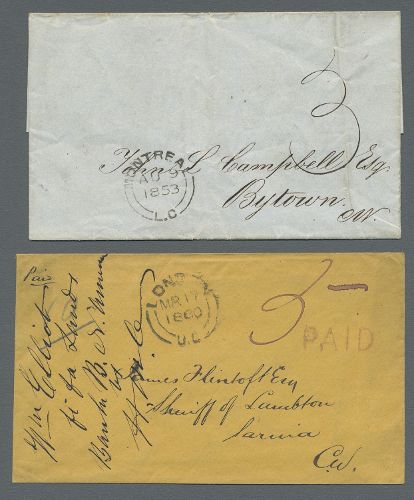 3
MONTREAL
AU 9
1853
L.C
L Campbell Esq
Bytown
CW.
Paid
LONDON
MR 17
1860
U.C
3
PAID
Wm Elliot
fi fa Lands
Bank B. N.
James Flintoft Esq
Sheriff of Lambton
Sarnia
C.W.